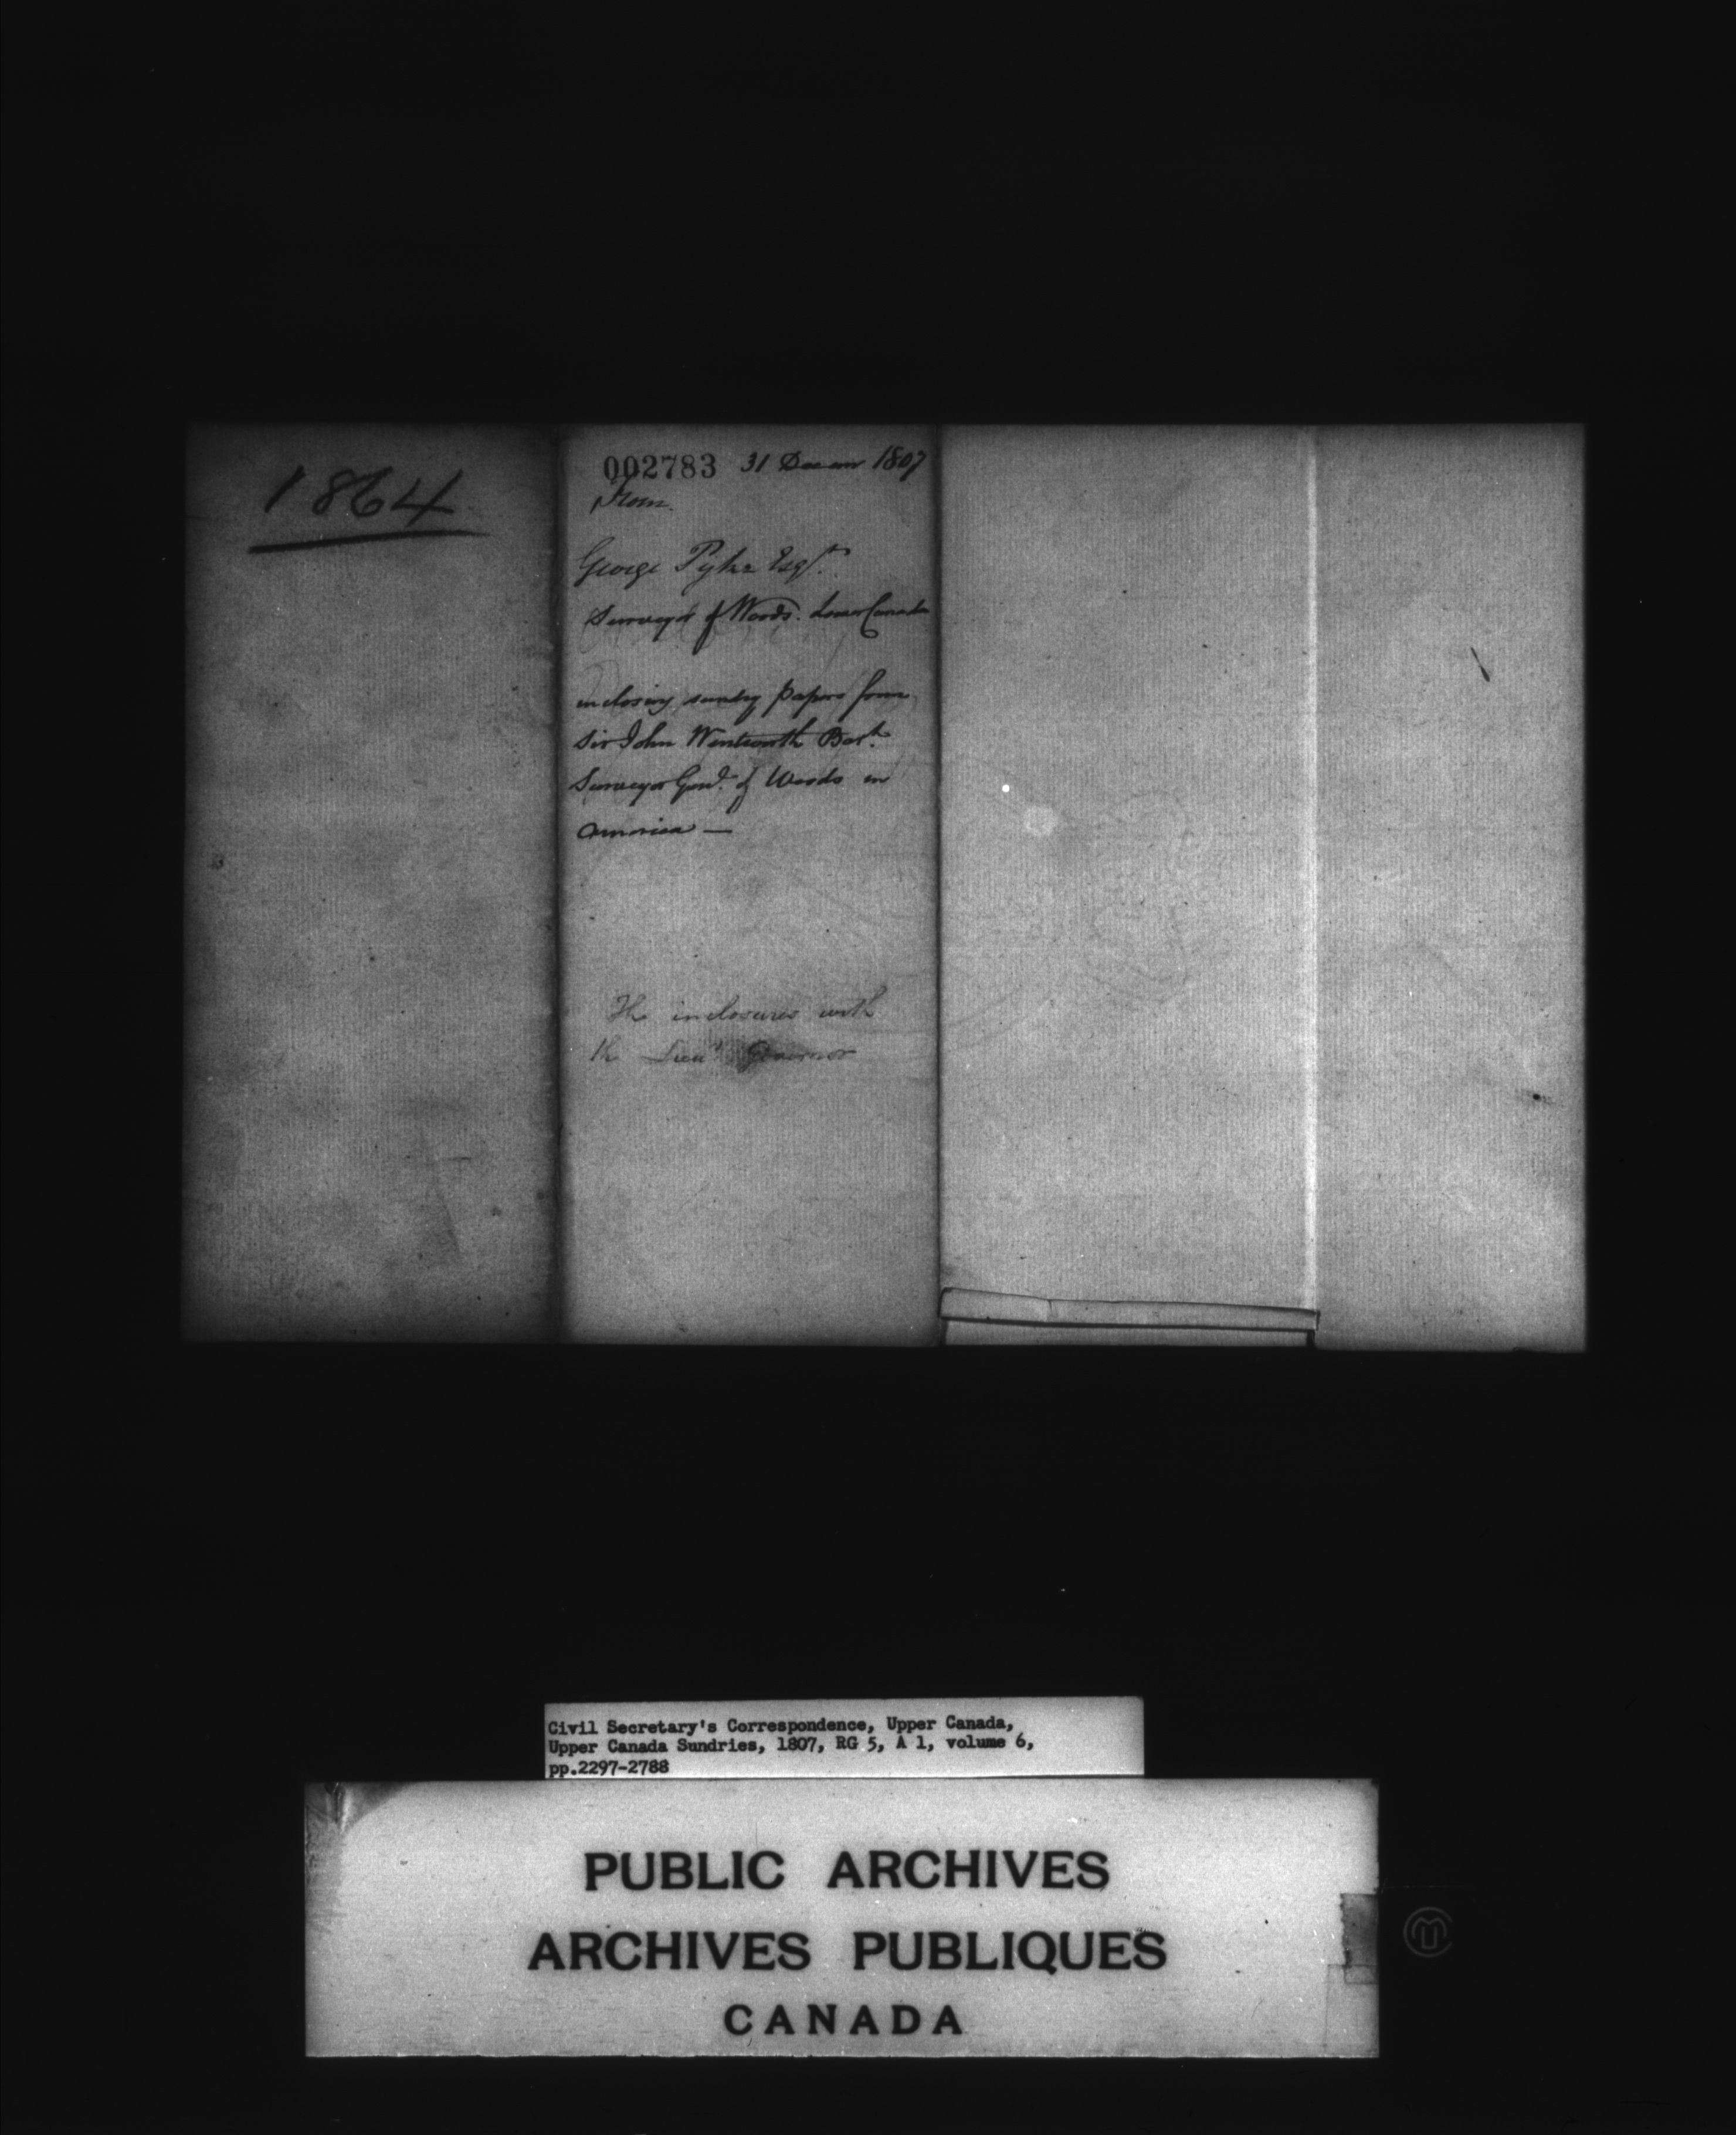 1864
002783 31 Decem 1807
From
George Pyke Esqr.
Surveyor of Woods. Lower Canada
inclosing sundry papers from
Sir John Wentworth Bart.
Surveyor Genl. of Woods in
America —
The inclosures with
the Lieut Governor
Civil Secretary's Correspondence, Upper Canada,
Upper Canada Sundries, 1807, RG 5, A 1, volume 6,
pp.2297-2788
PUBLIC ARCHIVES
ARCHIVES PUBLIQUES
CANADA